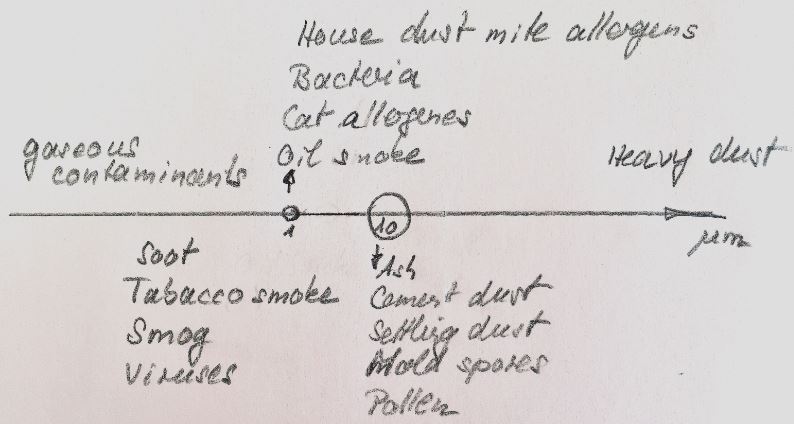 House dust mite allergens
Bacteria
Cat allogenes
Oil smoke
gaseous
contaminants
Heavy dust
1
10
μm
Soot
Tabacco smoke
Smog
Viruses
Ash
Cement dust
Settling dust
Mold spores
Pollen